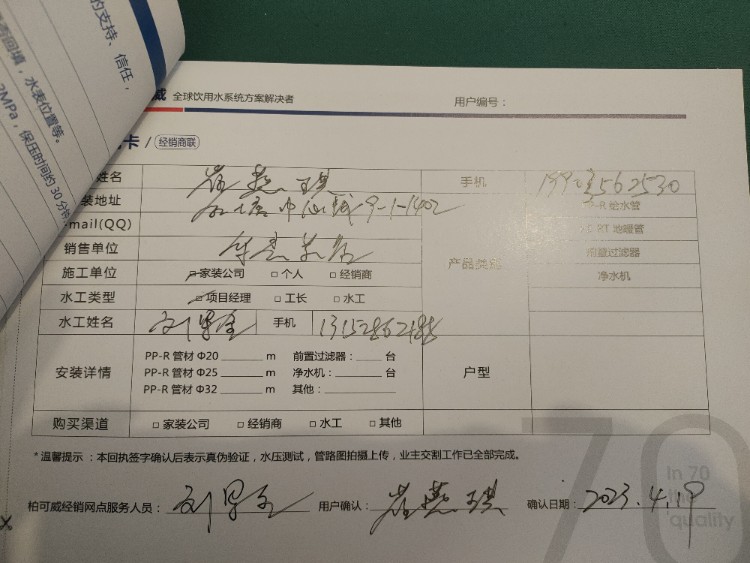 的支持、信任，
否回填，水表位置等。
2MPa，保压时间约30分钟
威 全球饮用水系统方案解决者
用户编号：
卡 / 经销商联
姓名 手机
装地址 中心城9-1-1402 P-R 给水管
-mail(QQ) RT 地暖管
销售单位 产品类别 前置过滤器
施工单位 □家装公司 □个人 □经销商 净水机
水工类型 □项目经理 □工长 □水工
水工姓名 手机
安装详情 PP-R 管材 Φ20 m 前置过滤器： 台 户型
PP-R 管材 Φ25 m 净水机： 台
PP-R 管材 Φ32 m 其他：
购买渠道 □家装公司 □经销商 □水工 □其他
*温馨提示：本回执签字确认后表示真伪验证，水压测试，管路图拍摄上传，业主交割工作已全部完成。
柏可威经销网点服务人员： 用户确认： 确认日期：2023.4.19
70
In 70
quality